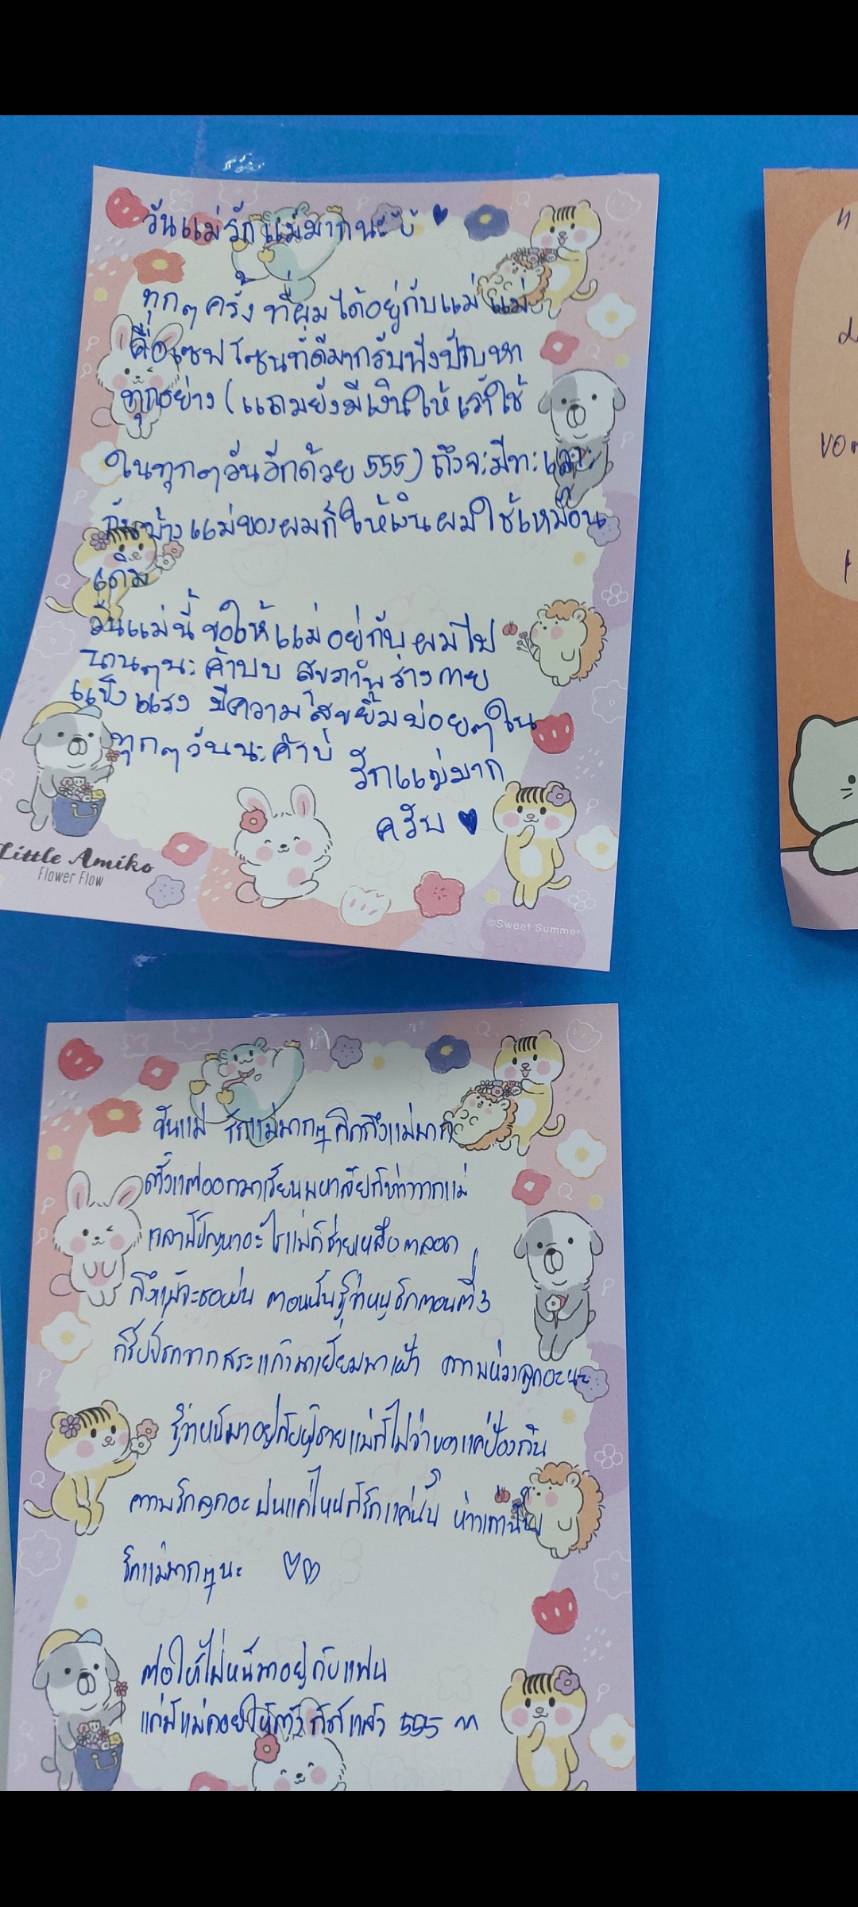 วันแม่รักแม่มากนะงับ ♥
ทุกๆครั้ง ที่ผมได้อยู่กับแม่ แม่
คือเซฟโซนที่ดีมากรับฟังปัญหา
ทุกอย่าง (แถมยังมีเงินให้เราใช้
ในทุกๆวันอีกด้วย 555) ถึงจะมีทะเลาะ
กันบ้างแม่ของผมก็ให้เงินผมใช้เหมือน
เดิม
วันแม่นี้ ขอให้แม่อยู่กับผมไป
นานๆนะค้าบบ สุขภาพร่างกาย
แข็งแรง มีความสุขยิ้มบ่อยๆใน
ทุกๆวันนะค้าบ
รักแม่มาก
ครับ ♥
Little Amiko
Flower Flow
©Sweet Summer
วันแม่ รักแม่มากๆ คิดถึงแม่มาก
ตั้งแต่ออกมาเรียนมหาลัยก็ห่างจากแม่
เวลามีปัญหาอะไรแม่ก็ช่วยเหลือตลอด
ถึงแม้จะชอบบ่น ตอนนั้นรู้ว่าหนูชักตอนตี 3
ก็รีบขับรถจากสระแก้วมาเยี่ยมมาเฝ้า ความห่วงลูกอะนะ
รู้ว่าหนีมาอยู่กับผู้ชายแม่ก็ไม่ว่าขอแค่ป้องกัน
ความรักลูกอะ บ่นแค่ไหนก็รักแค่นั้น
รักแม่มากๆนะ ♡♡
ต่อให้ไม่หนีมาอยู่กับแฟน
แค่มีแม่คอยให้ตังก็ดีแล้ว 555